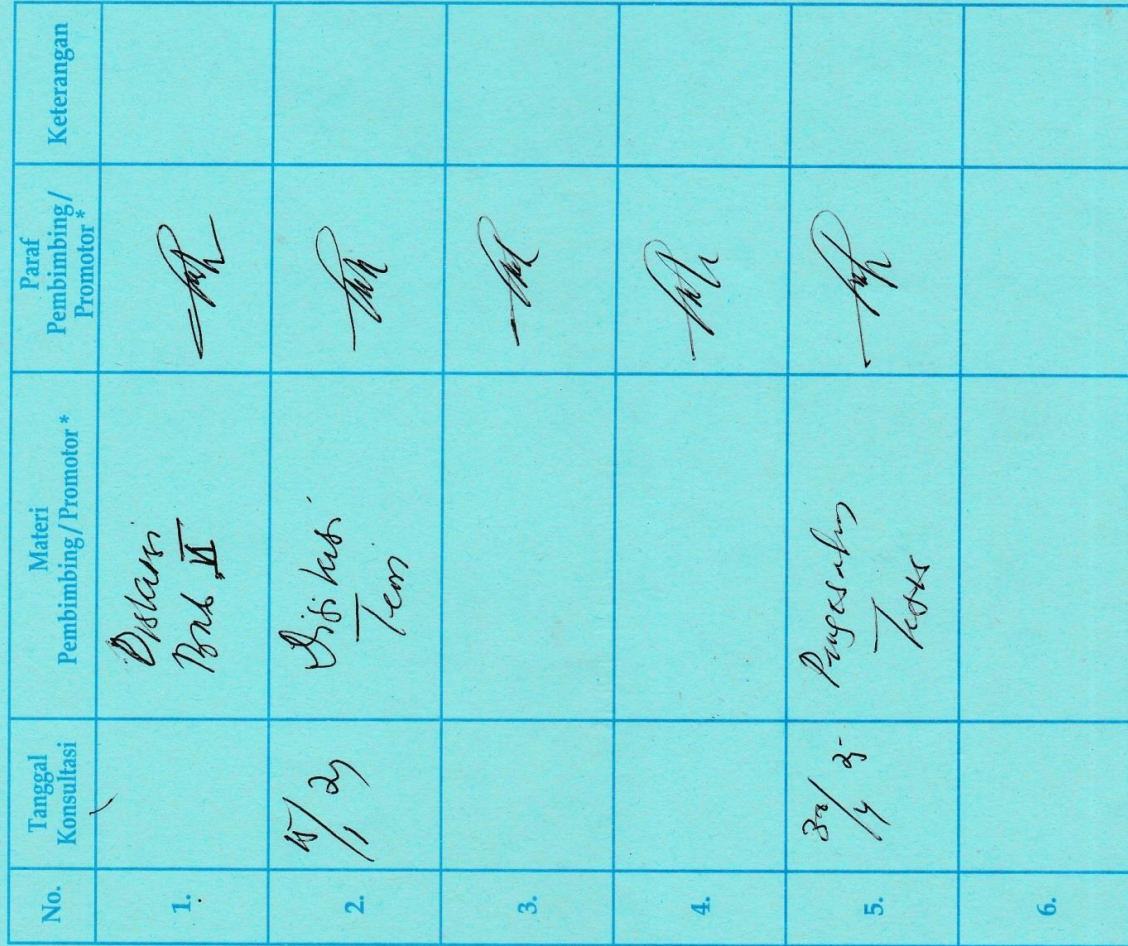 No.
Tanggal
Konsultasi
Materi
Pembimbing / Promotor *
Paraf
Pembimbing /
Promotor *
Keterangan
1.
Diskusi
Bab VI
2.
15/1 25
Teori
3.
4.
5.
30/4 25
Pengesahan
Tesis
6.